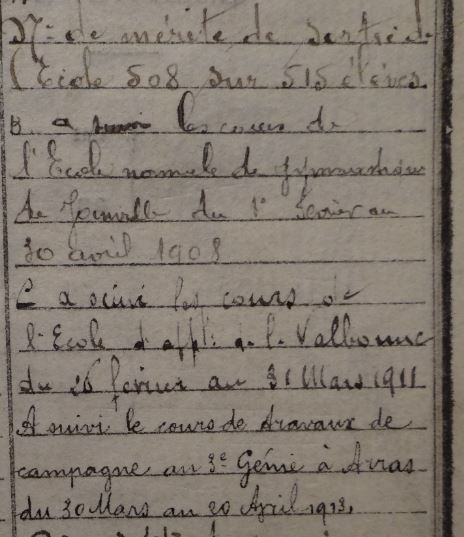 N° de mérite de sortie de
l'École 508 sur 515 élèves.
B a suivi les cours de
l'École normale de gymnastique
de Joinville du 1er février au
30 avril 1908
C a suivi les cours de
l'École d'appl. de l. Valbonne
du 26 février au 31 Mars 1911
A suivi le cours de travaux de
campagne au 3e Génie à Arras
du 30 Mars au 20 April 1913.